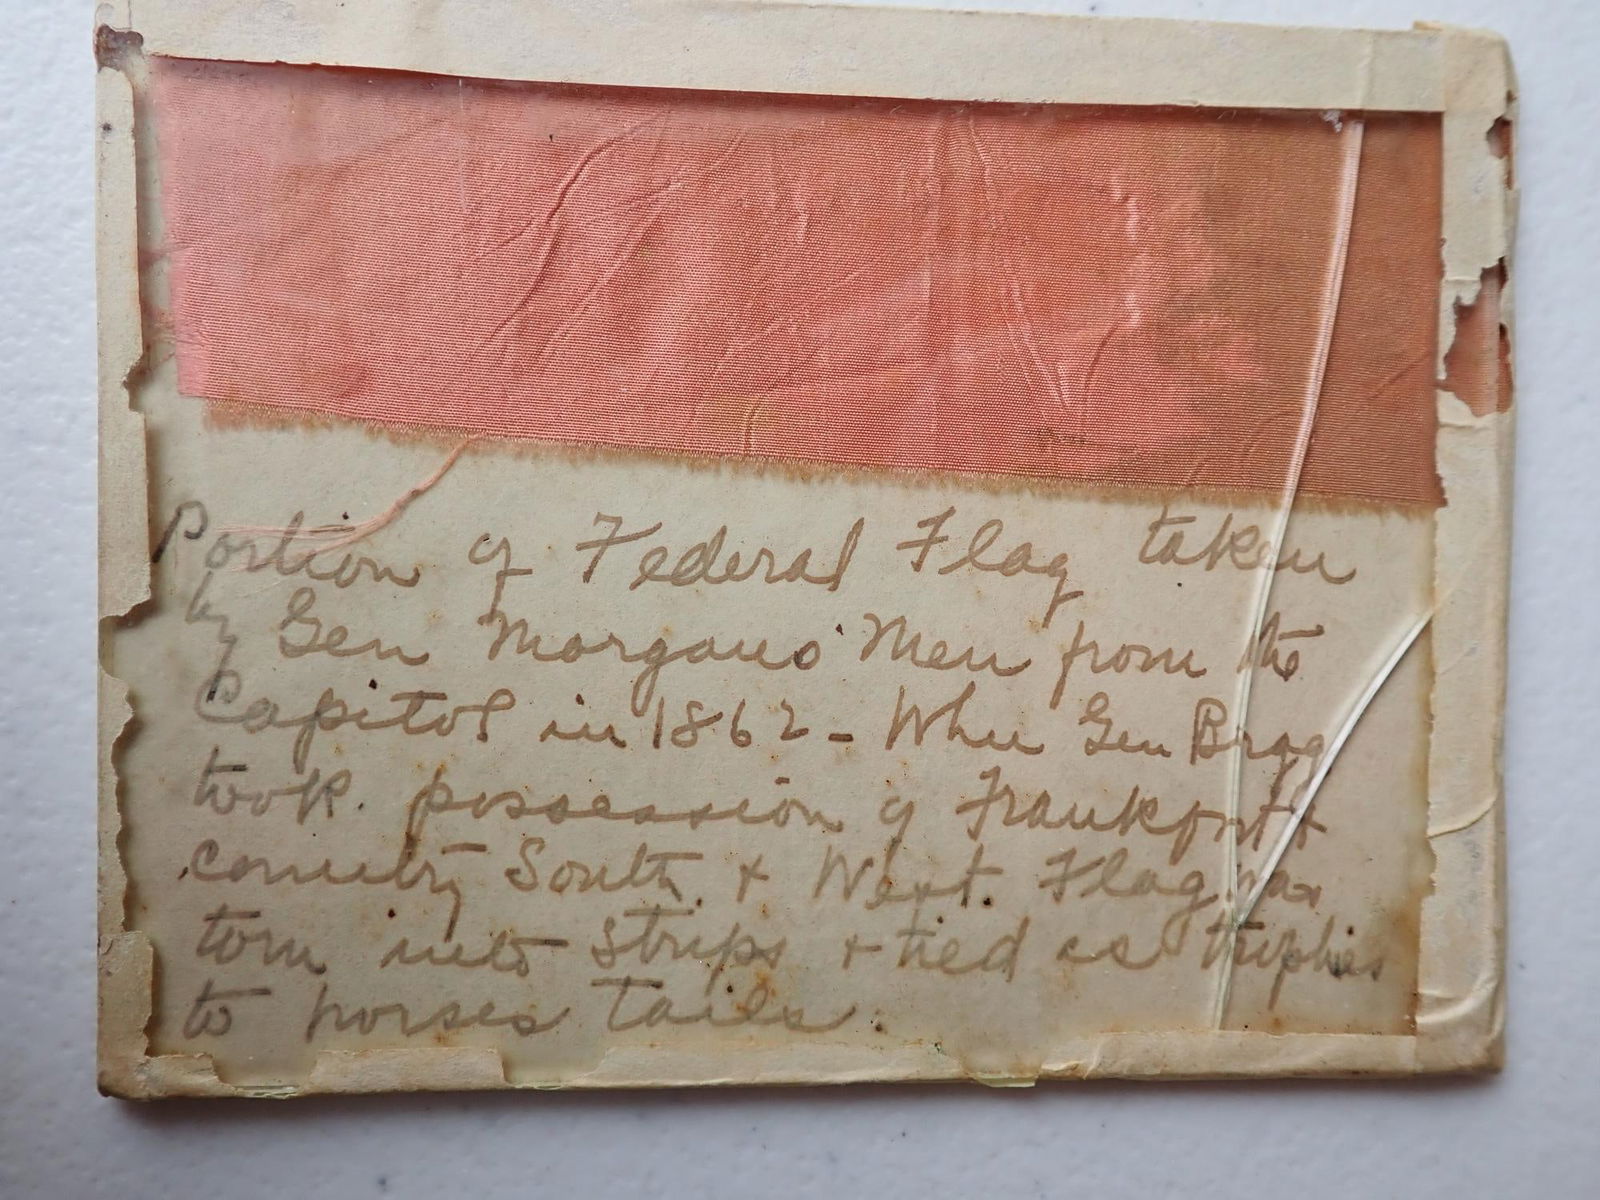 Portion of Federal Flag taken
by Gen Morgans' Men from the
Capitol in 1862 - When Gen Bragg
took possession of Frankfort &
country South & West. Flag was
torn into strips & tied as trophies
to horses tails.